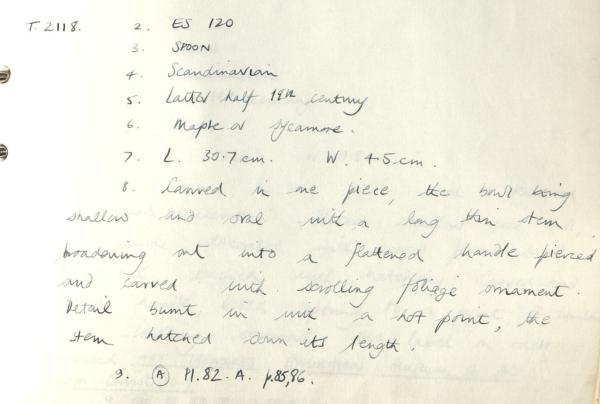 T. 2118. 2. ES 120
3. SPOON
4. Scandinavian
5. Latter half 19th century
6. Maple or sycamore.
7. L. 30.7cm. W. 4.5cm.
8. Carved in one piece, the bowl being
shallow and oval with a long thin stem
broadening out into a flattened handle pierced
and carved with scrolling foliage ornament.
Detail burnt in with a hot point, the
stem hatched down its length.
9. (A) Pl. 82. A. p.85,86.